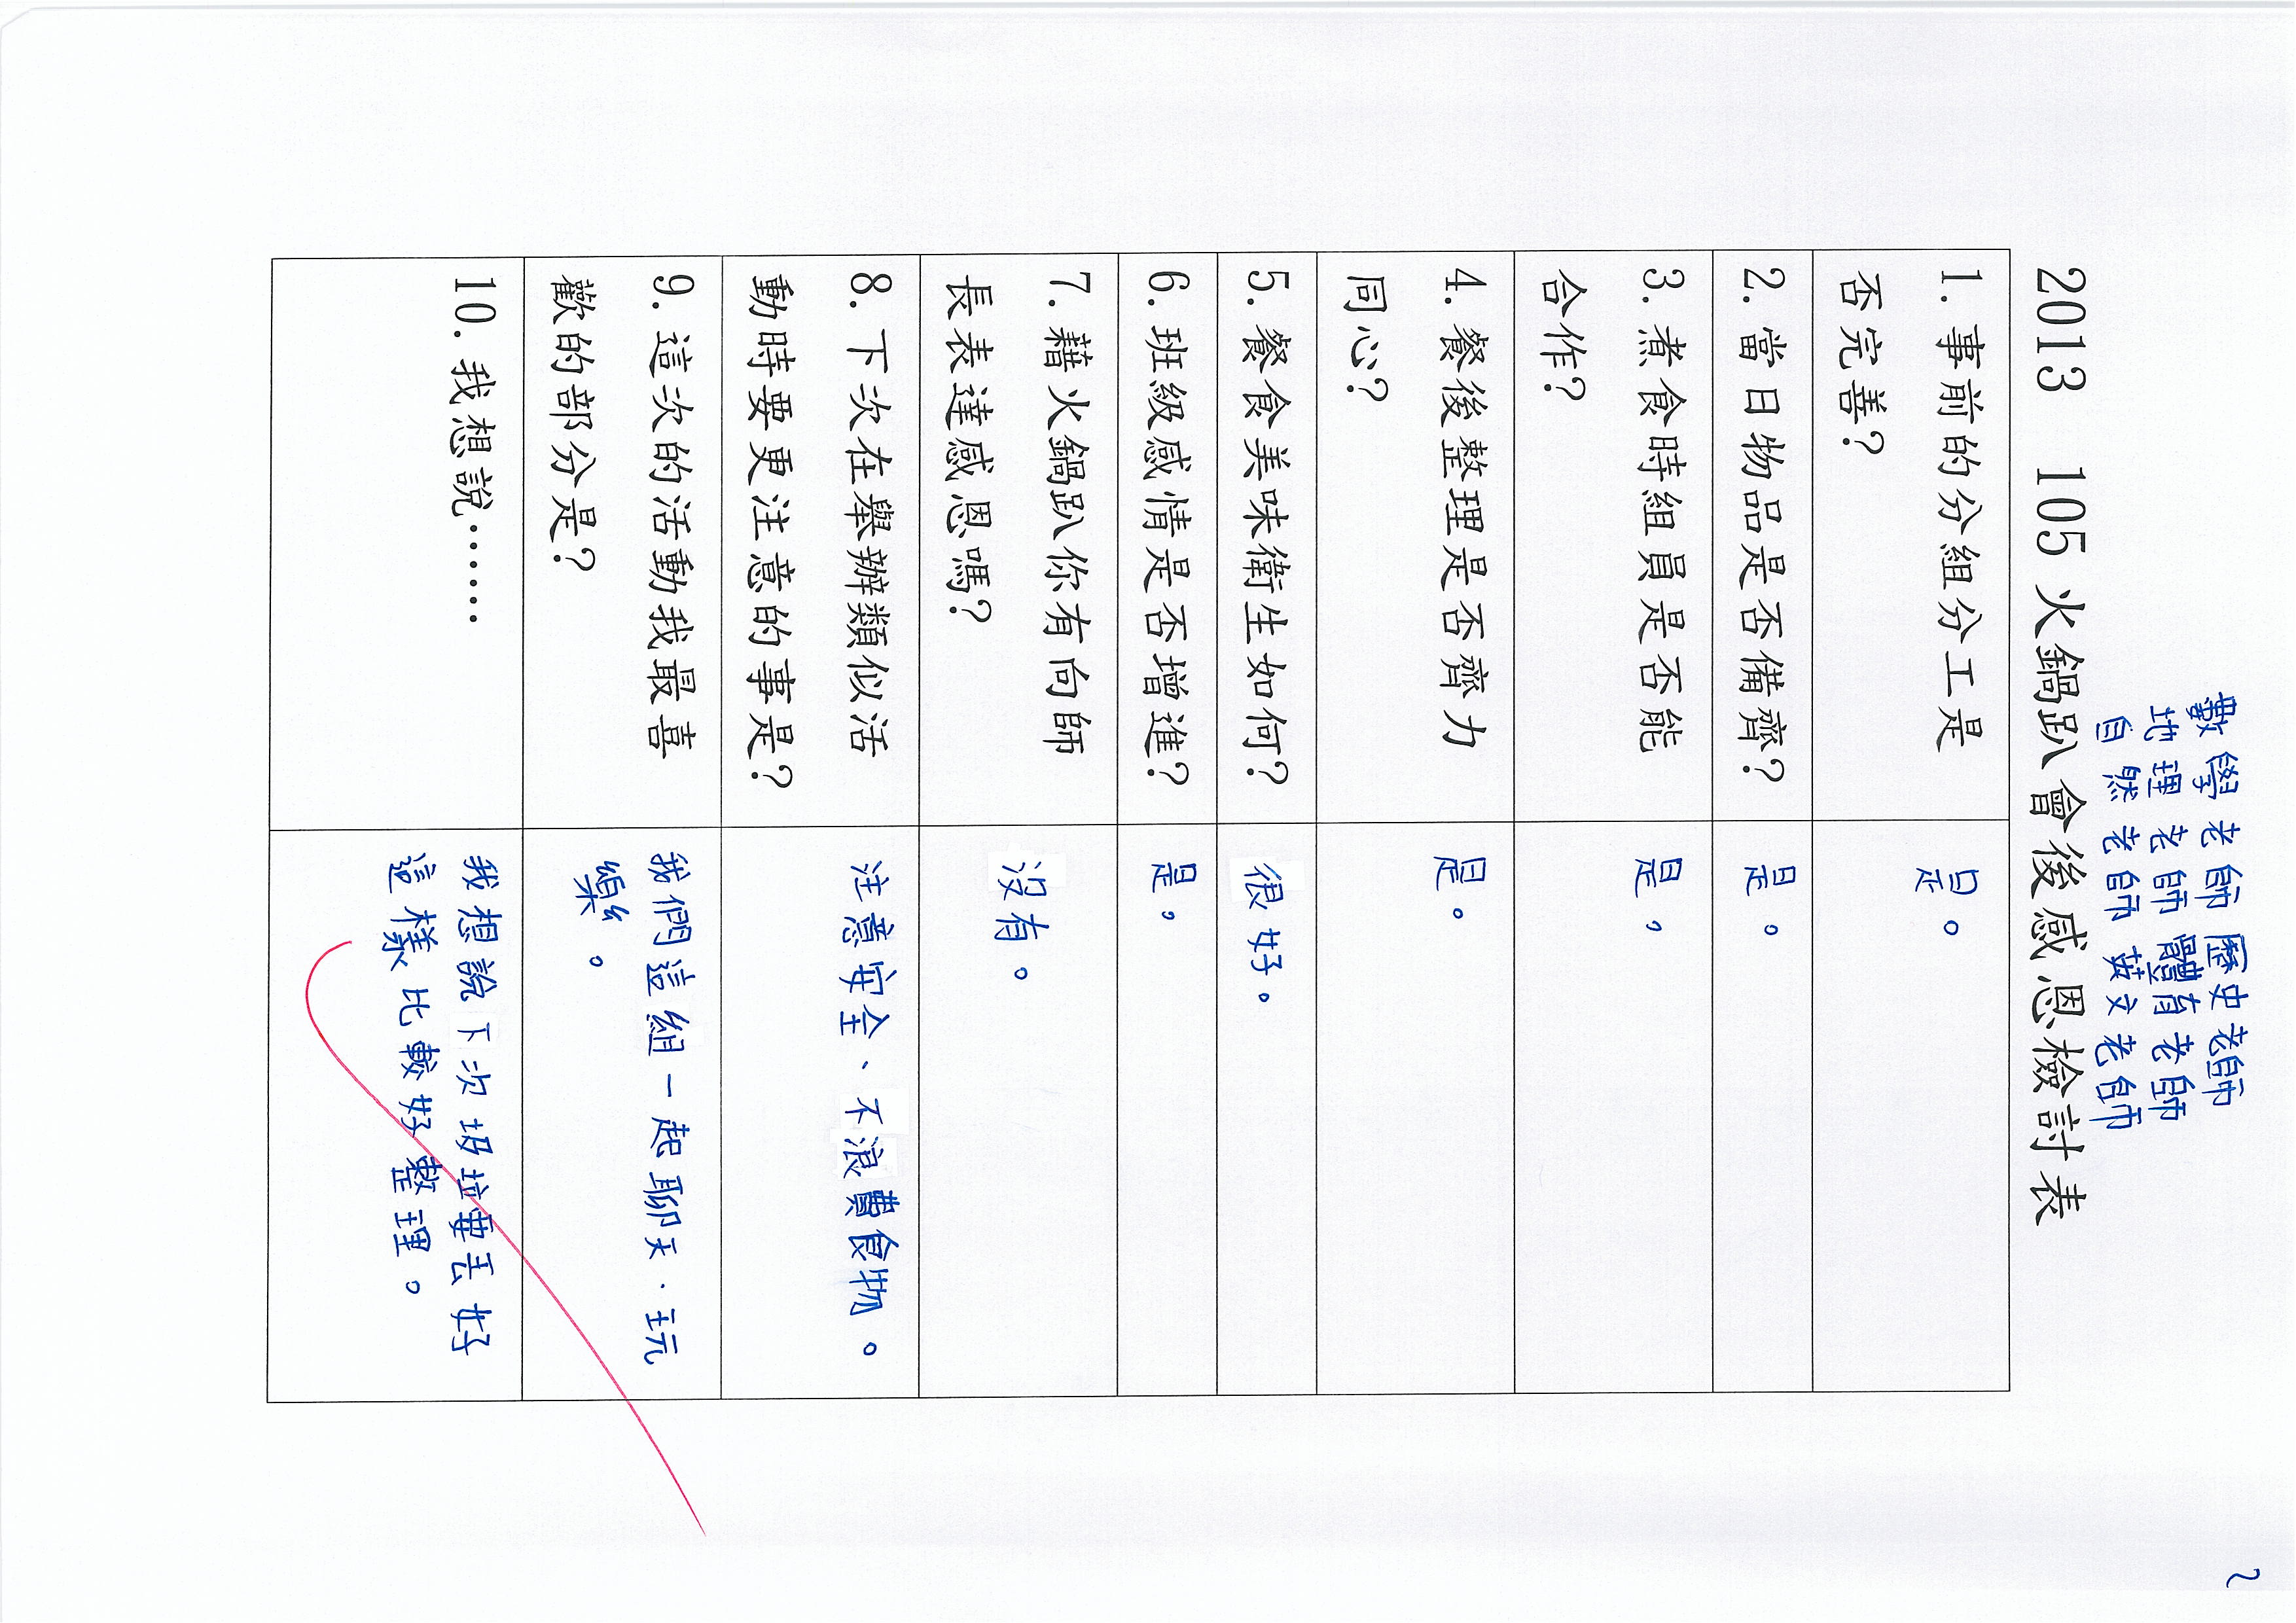 數學老師 歷史老師
地理老師 體育老師
自然老師 英文老師
2013 105火鍋趴會後感恩檢討表
1. 事前的分組分工是
否完善?
是。
2. 當日物品是否備齊?
是。
3. 煮食時組員是否能
合作?
是。
4. 餐後整理是否齊力
同心?
是。
5. 餐食美味衛生如何?
很好。
6. 班級感情是否增進?
是。
7. 藉火鍋趴你有向師
長表達感恩嗎?
沒有。
8. 下次在舉辦類似活
動時要更注意的事是?
注意安全、不浪費食物。
9. 這次的活動我最喜
歡的部分是?
我們這組一起聊天.玩
樂。
10. 我想說…….
我想說下次垃圾要丟好
這樣比較好整理。
2